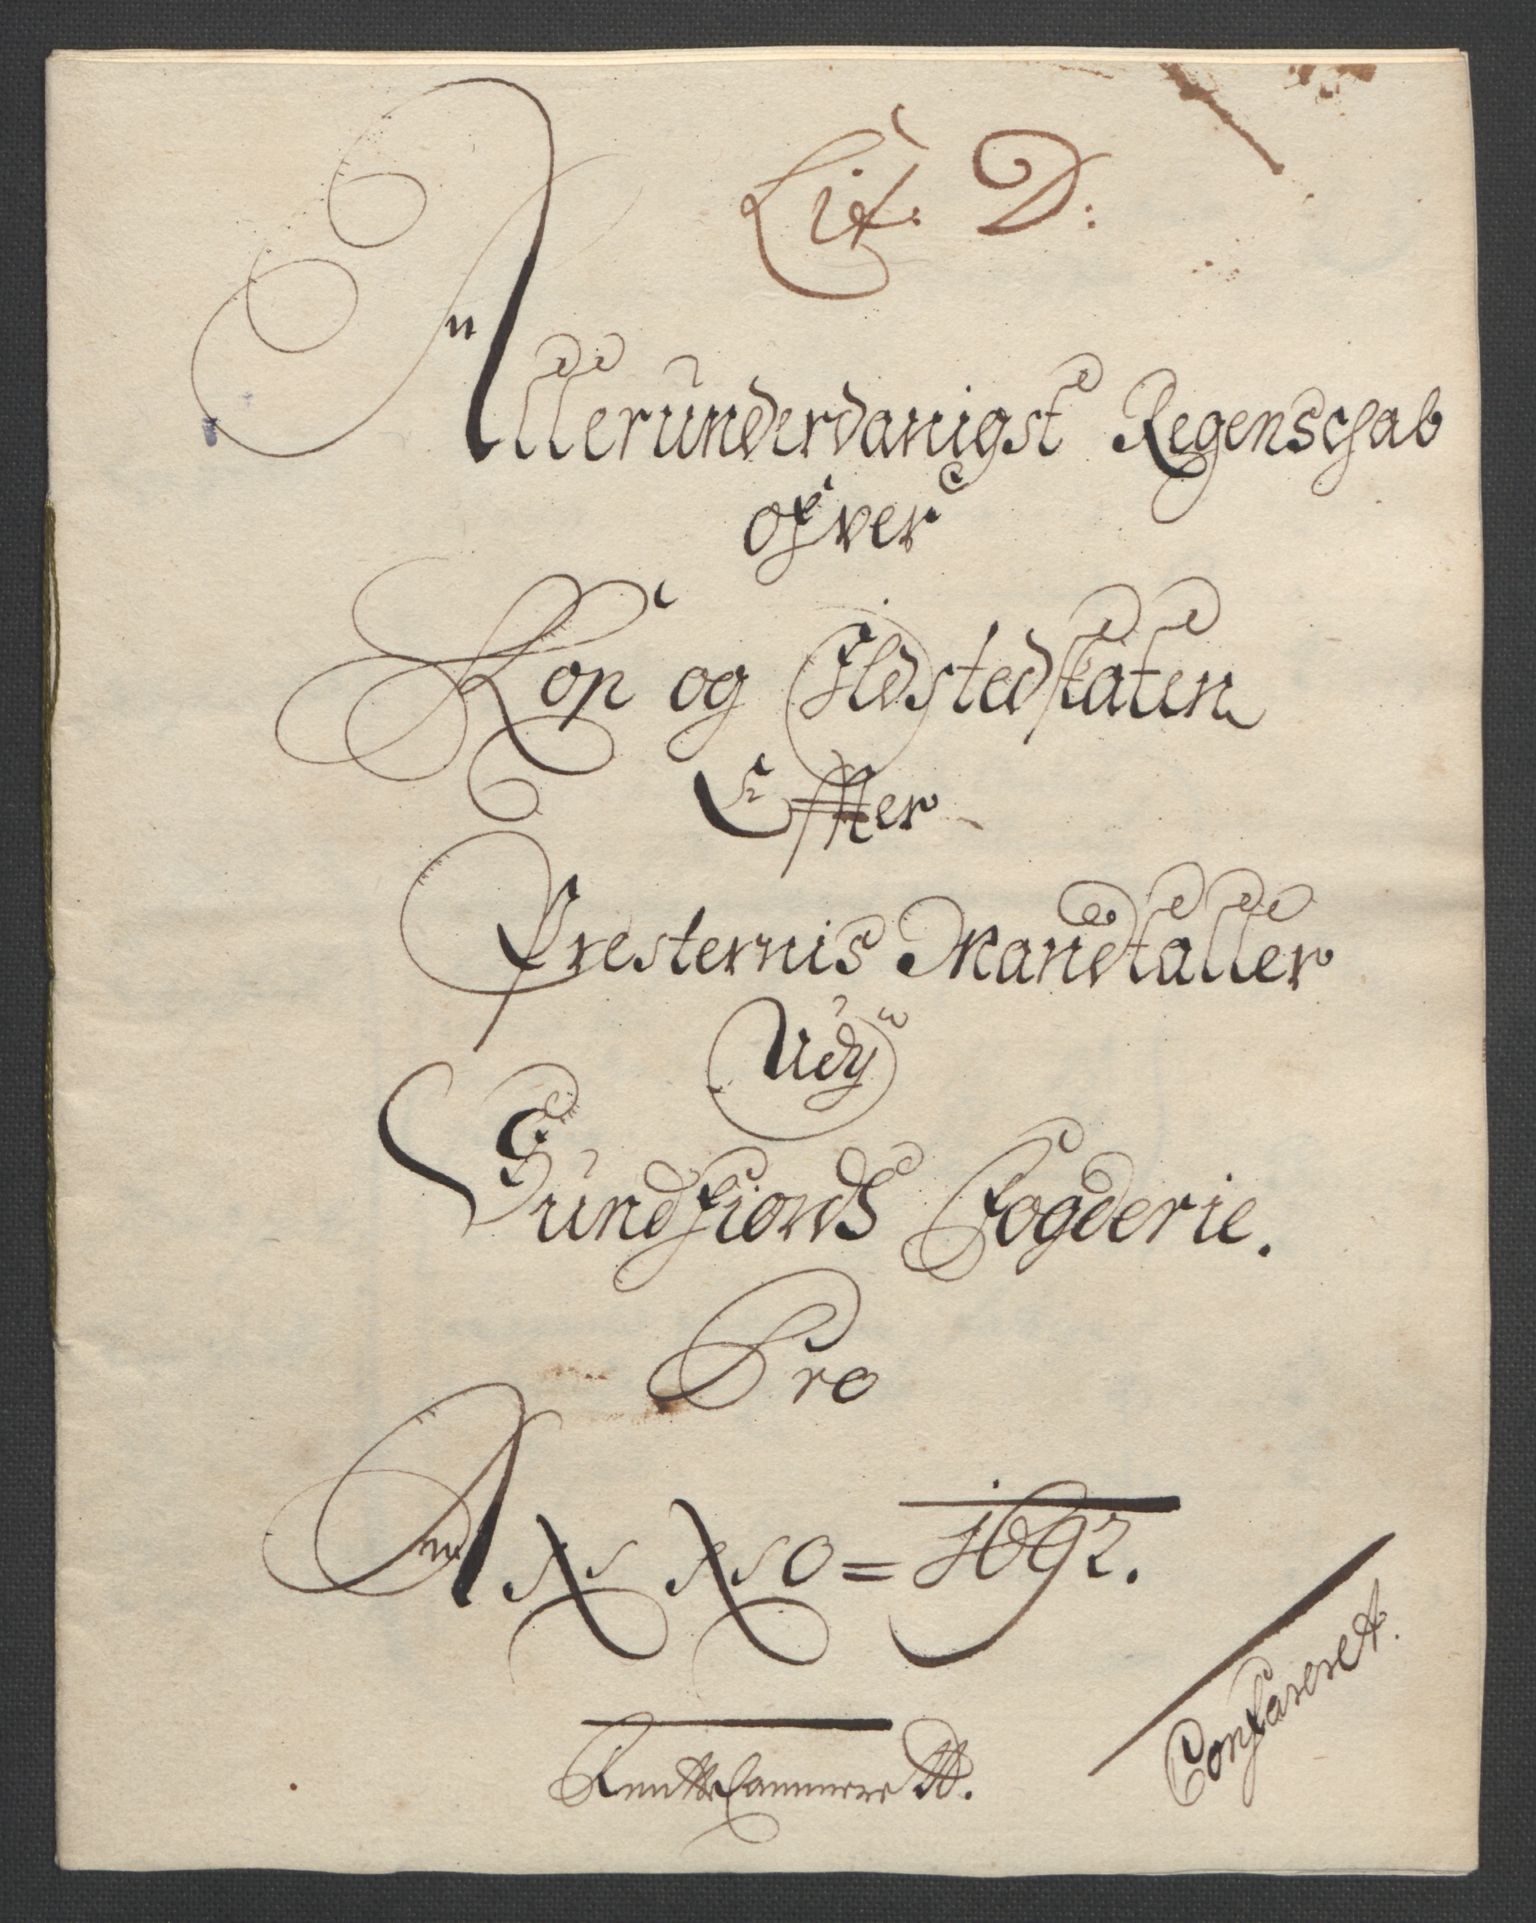 Lit. D:
Alleründerdanigst Regenschab
ofver
Kop og Ildstedskaten
Effter
Presternis Mandtaller
Udj
Sündfiords Fogderie.
Pro
Anno = 1692.
RentteCammerett.
Confareret.